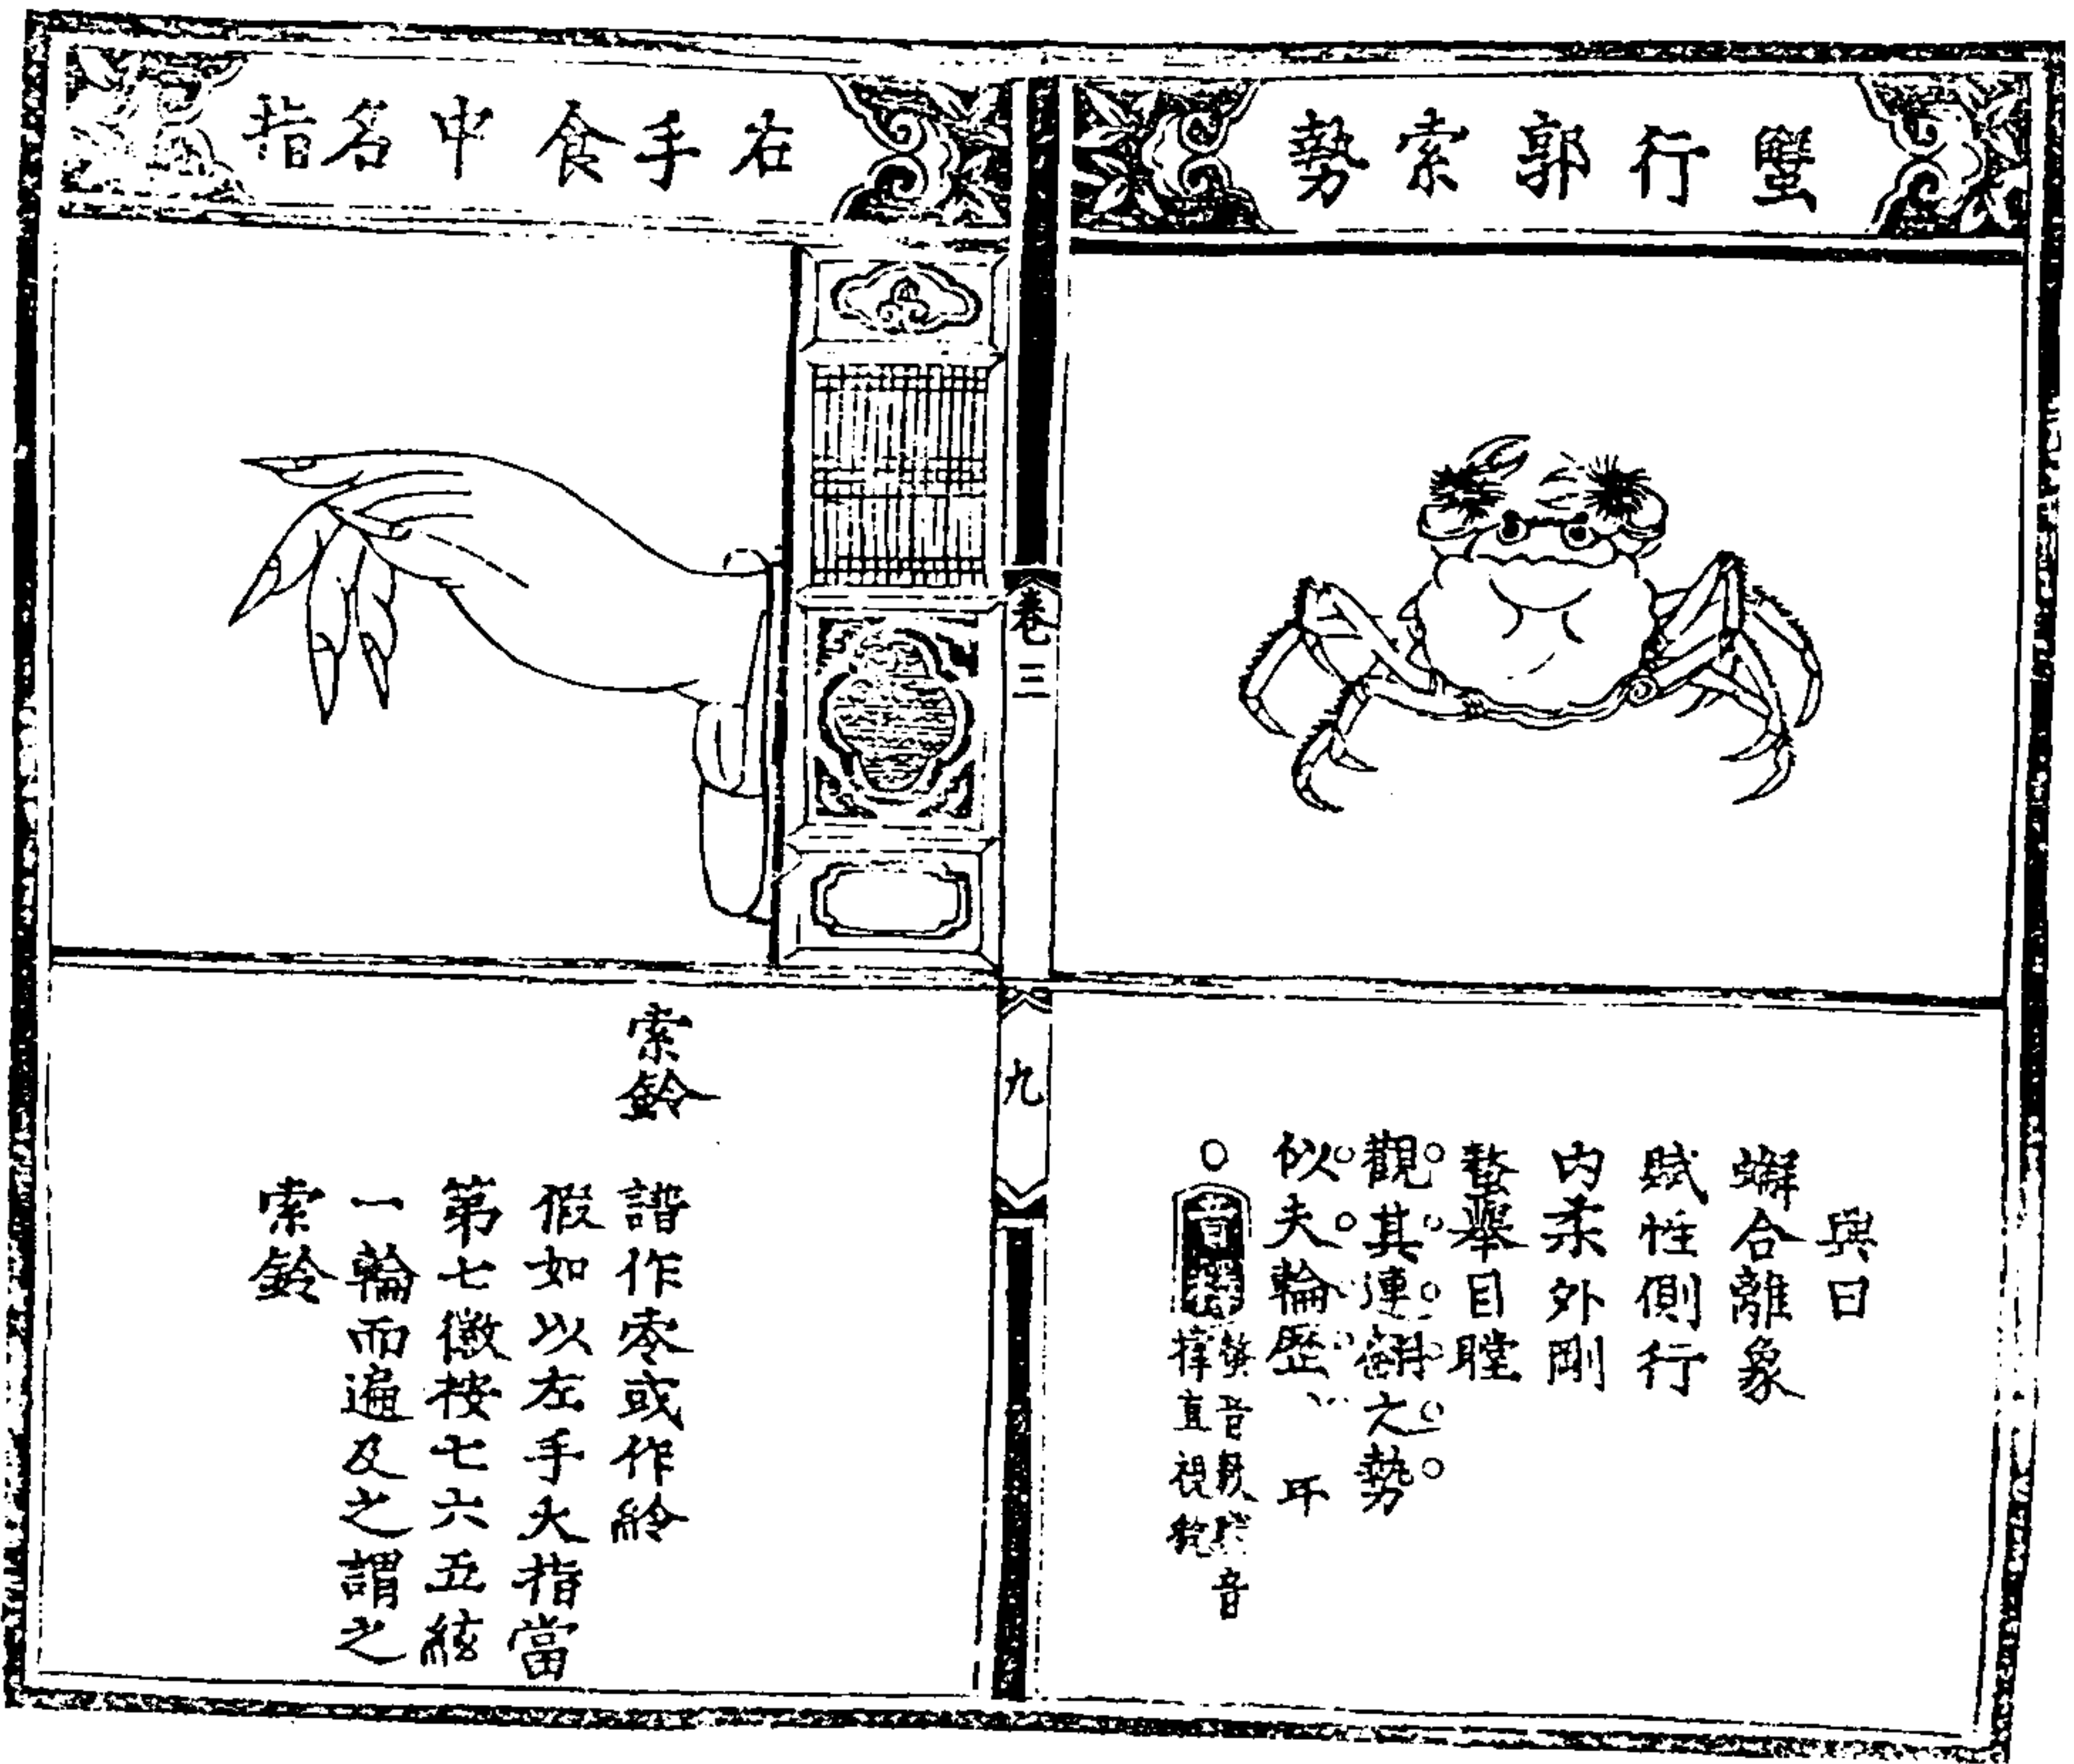 蟹行郭索勢
興曰
蠏合離象
賦性側行
内柔外剛
螯舉目瞠
觀其連翩之勢
似夫輪歷 耳
音釋
螯音敖 音
撑直視貌
卷三
九
右手食中名指
索鈴
諧作零或作紷
假如以左手大指當
第七徽按七六五絃
一輪而遍及之謂之
索鈴